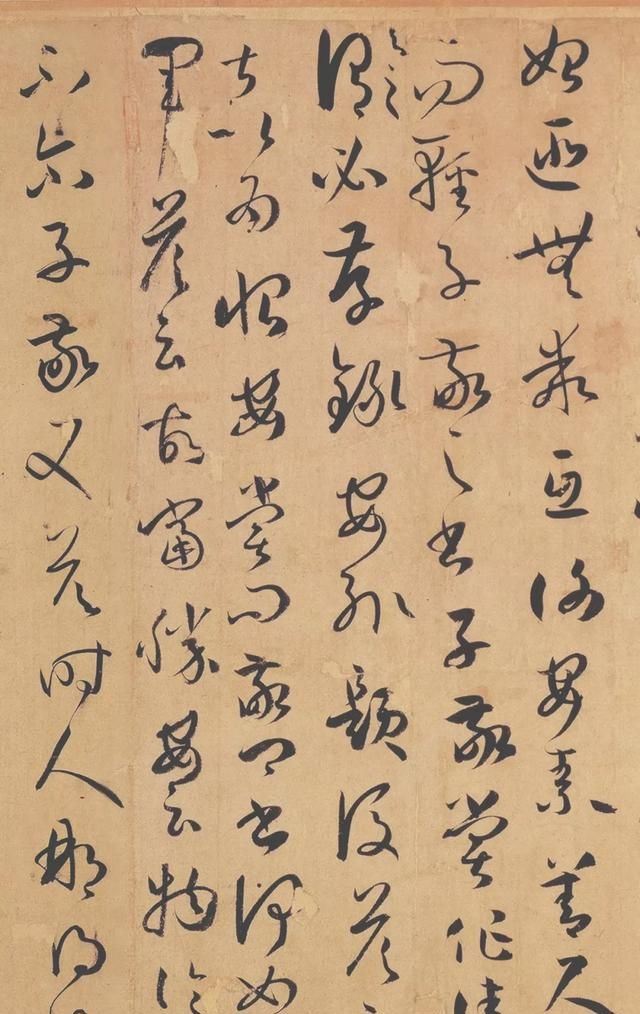 始匪無乖互謝安素善尺
而輕子敬之書子敬嘗作佳
謂必存錄安輒題後答
甚以為恨安嘗問敬卿書何如
軍答云故當勝安云物論
不尔子敬又答時人那得